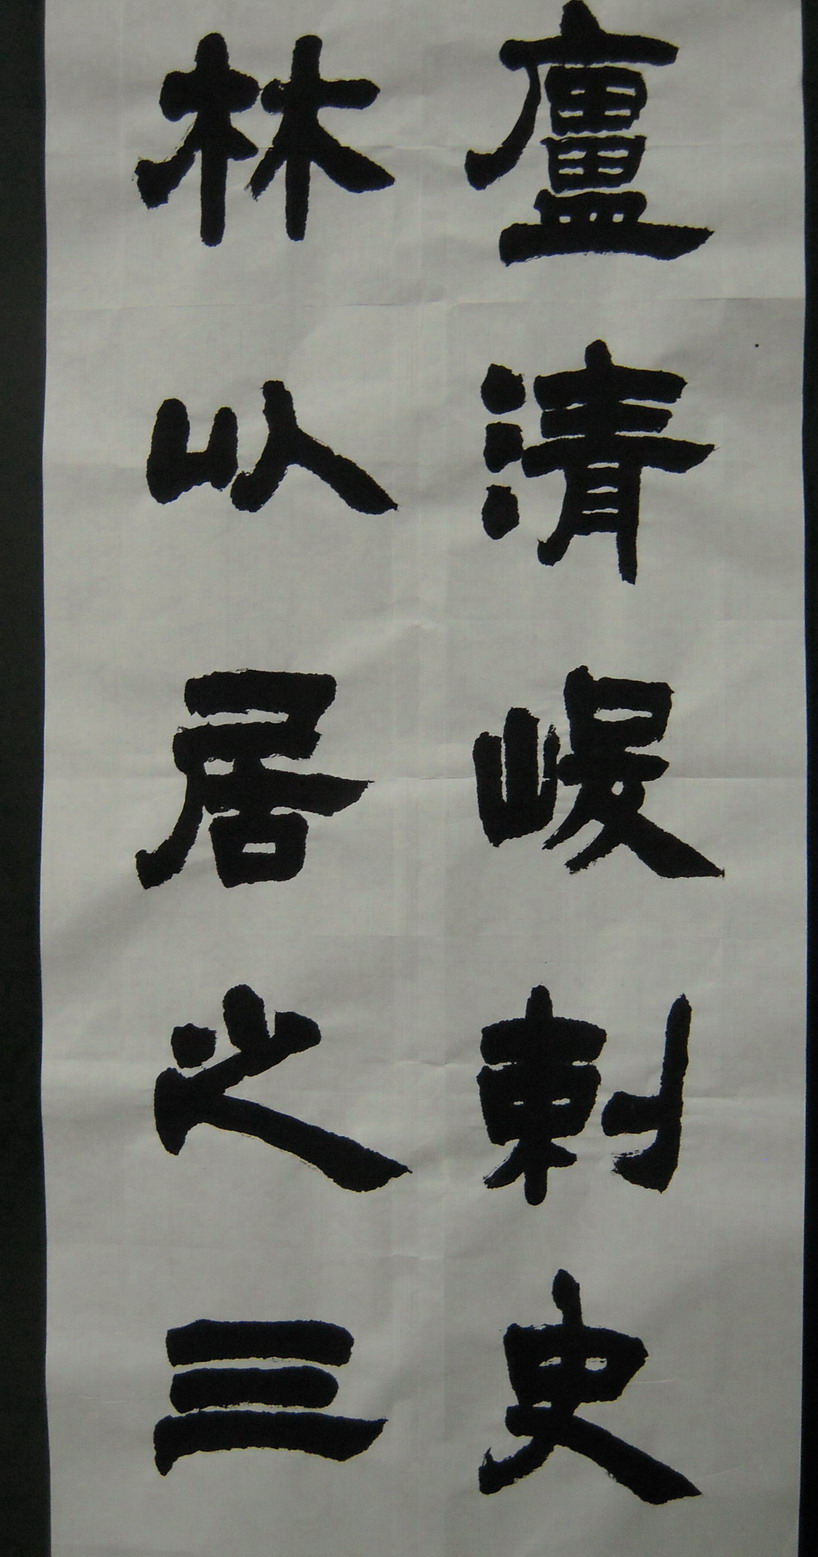 廬清峻刺史
林以居之三